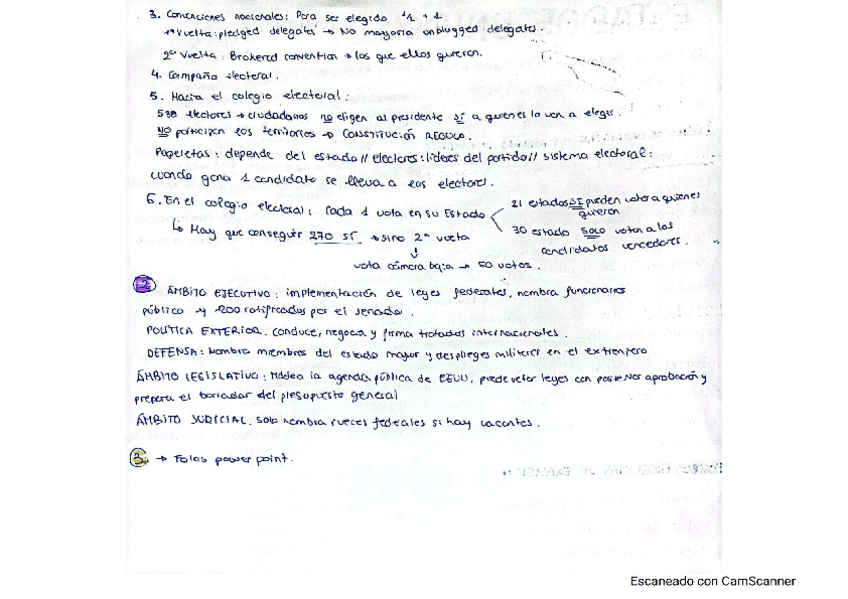 3. Convenciones nacionales: Para ser elegido ½ + 1
1ª vuelta: pledged delegates → No mayoria unplugged delegates.
2ª Vuelta: Brokered convention → los que ellos quieran.
4. Campaña electoral.
5. Hacia el colegio electoral:
538 electores → ciudadanos no eligen al presidente SÍ a quienes lo van a elegir.
NO participan los territorios → CONSTITUCIÓN REGULA.
Papeletas: depende del estado // electores: líderes del partido // sistema electoral:
cuando gana 1 candidato se lleva a los electores.
6. En el colegio electoral: Cada 1 vota en su Estado
21 estados SI pueden votar a quienes quieran
30 estado SOLO votan a los candidatos vencedores.
↳ Hay que conseguir 270 SÍ → sino 2ª vuelta
↓
vota cámara baja → 50 votos.
2. ÁMBITO EJECUTIVO: implementación de leyes federales, nombra funcionarios
público y 1200 ratificados por el senado.
POLÍTICA EXTERIOR. conduce, negocia y firma tratados internacionales.
DEFENSA: Nombra miembros del estado mayor y despliegues militares en el extranjero
ÁMBITO LEGISLATIVO: Moldea la agenda pública de EEUU, puede vetar leyes con posterior aprobación y
prepara el borrador del presupuesto general
ÁMBITO JUDICIAL. Solo nombra jueces federales si hay vacantes.
3. → Folos power point.
Escaneado con CamScanner